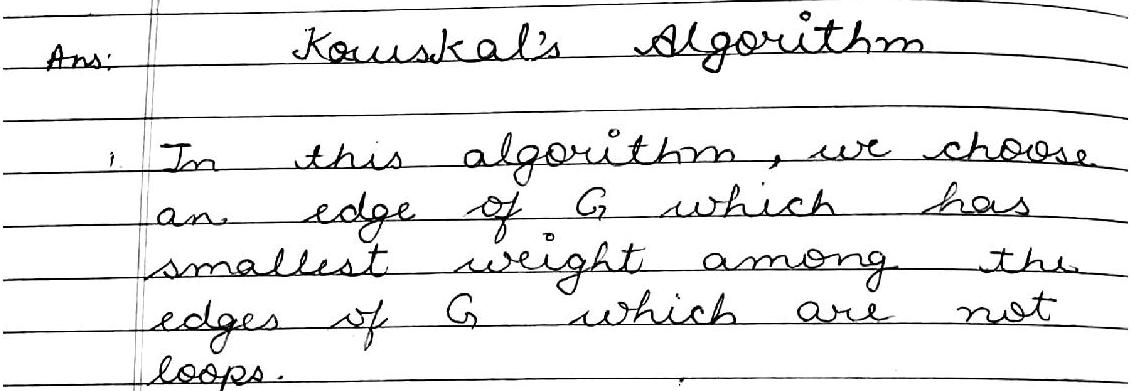 Ans: Kruskal's Algorithm
1. In this algorithm, we choose
an edge of G which has
smallest weight among the
edges of G which are not
loops.